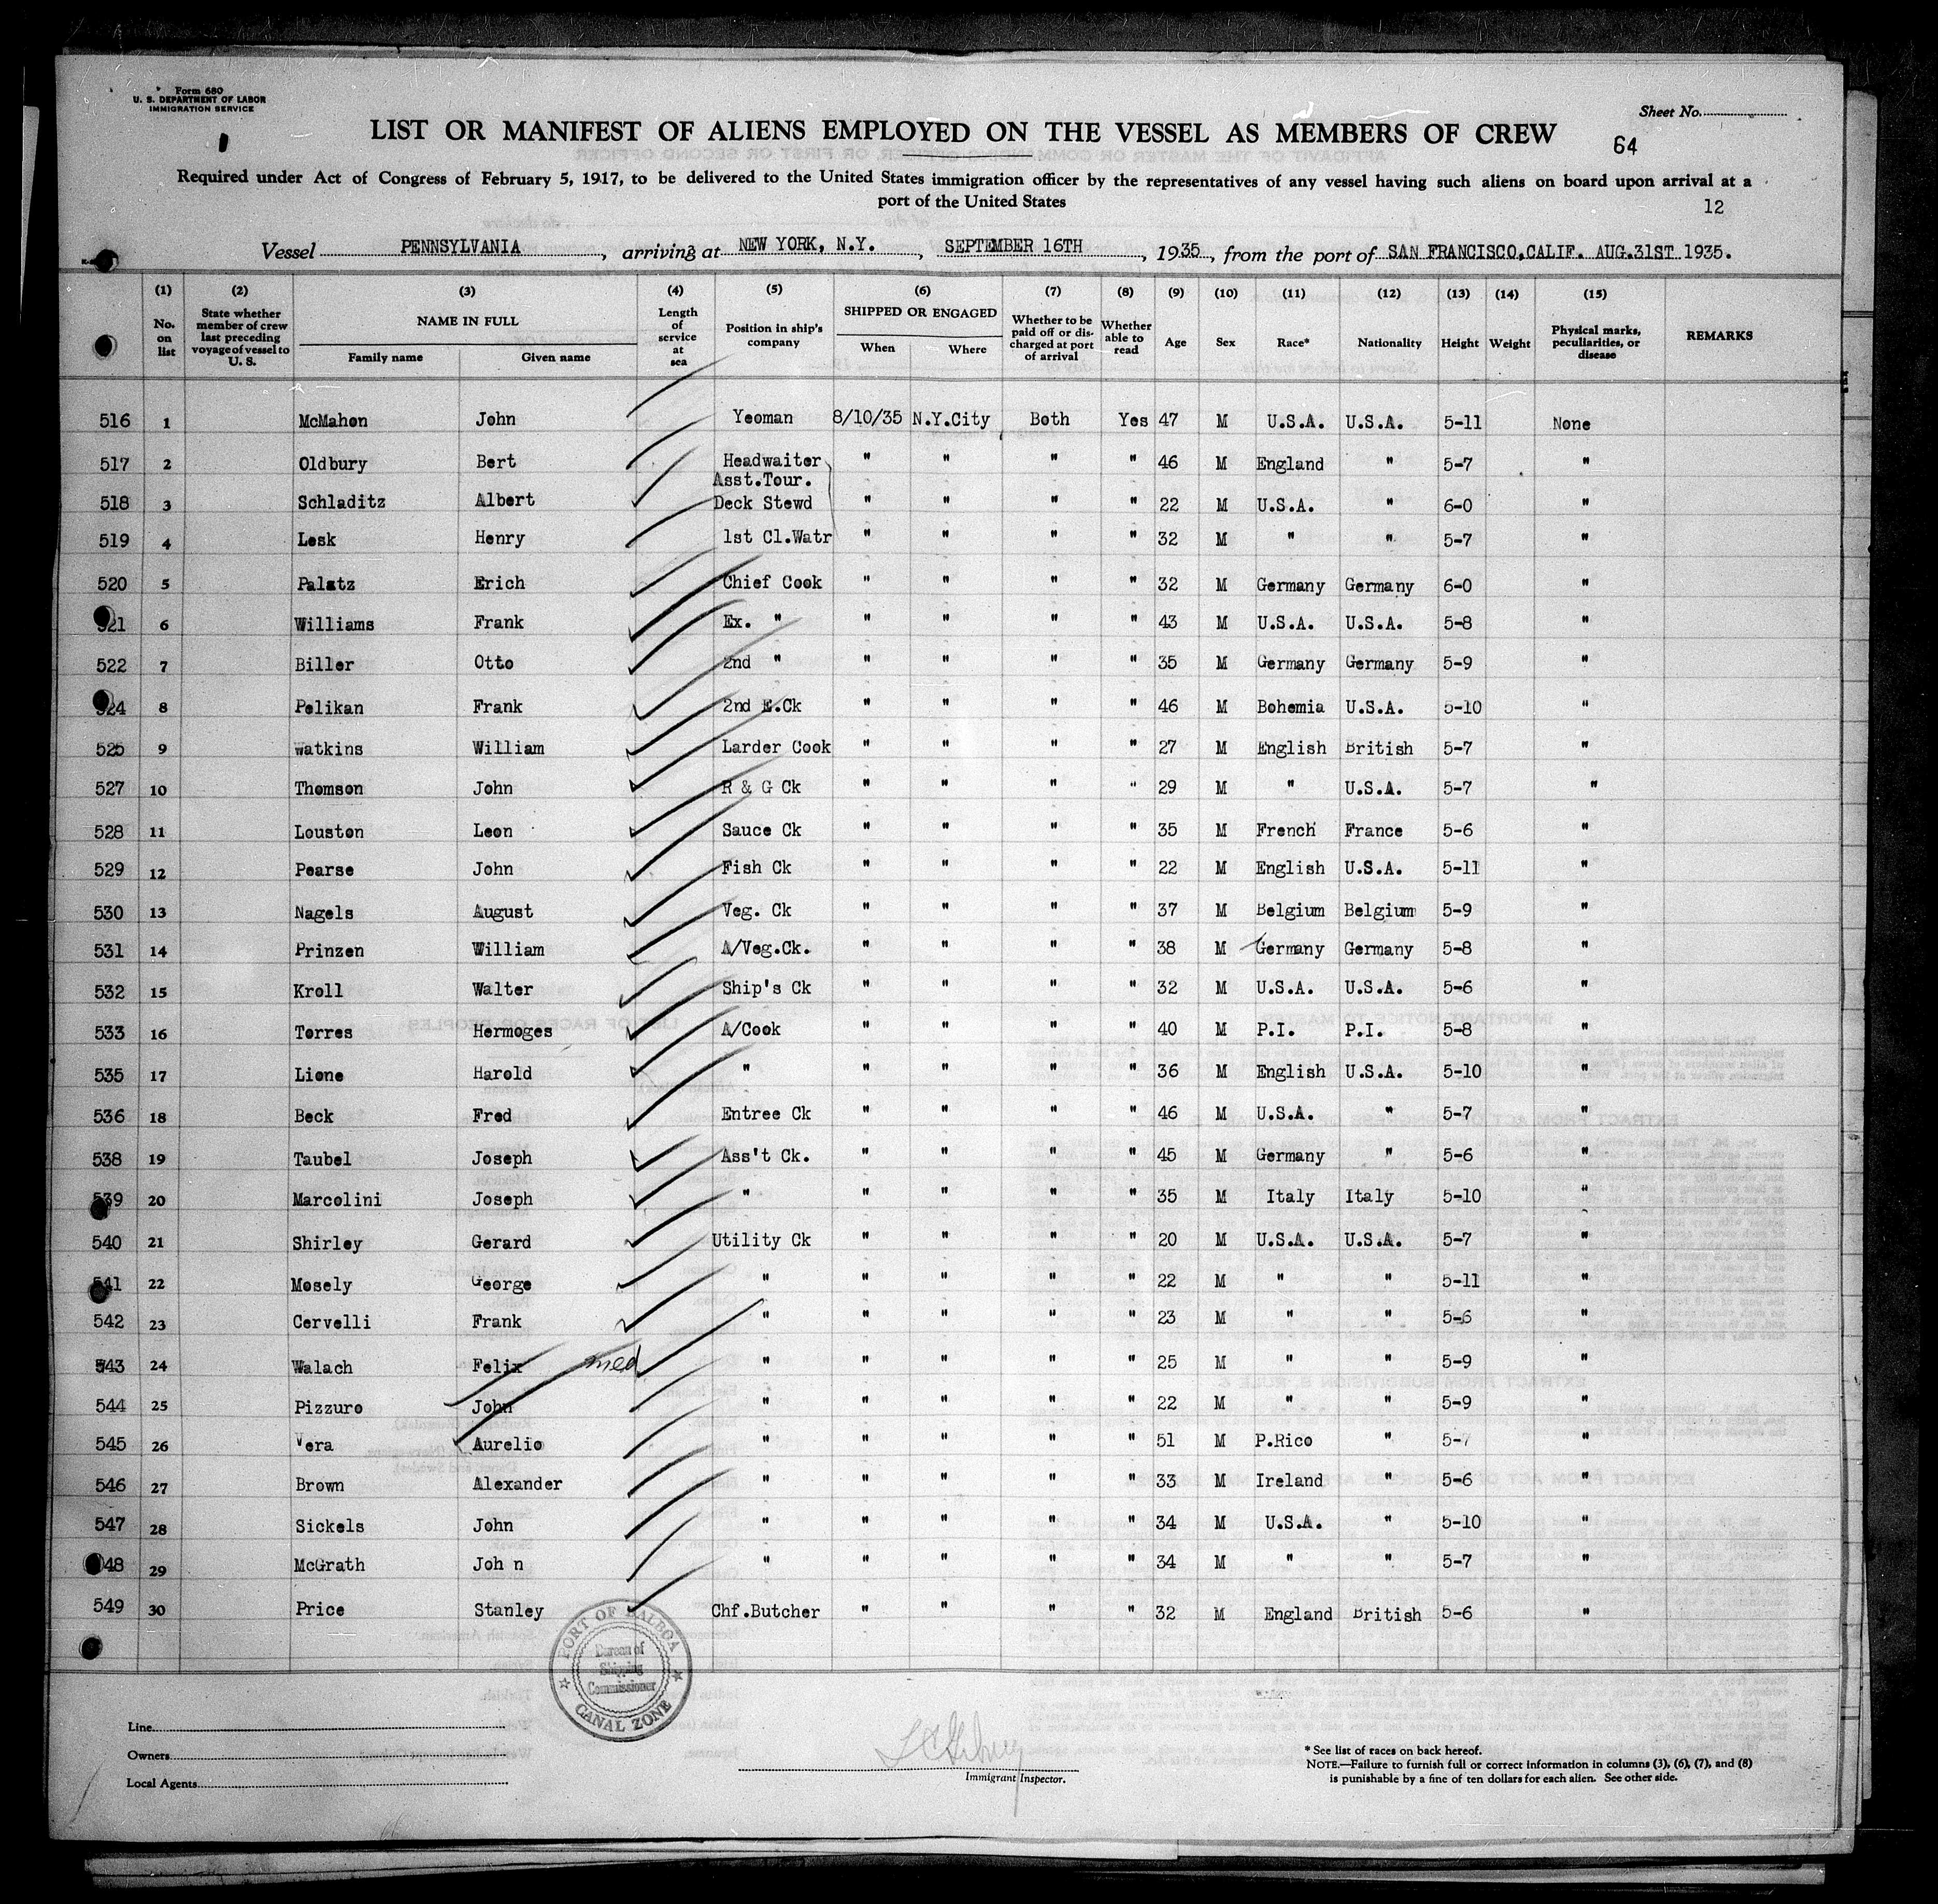 Form 680
U. S. DEPARTMENT OF LABOR
IMMIGRATION SERVICE
Sheet No.
LIST OR MANIFEST OF ALIENS EMPLOYED ON THE VESSEL AS MEMBERS OF CREW
64
Required under Act of Congress of February 5, 1917, to be delivered to the United States immigration officer by the representatives of any vessel having such aliens on board upon arrival at a
port of the United States
12
Vessel PENNSYLVANIA, arriving at NEW YORK, N.Y., SEPTEMBER 16TH, 1935, from the port of SAN FRANCISCO,CALIF. AUG.31ST 1935.
(1) (2) (3) (4) (5) (6) (7) (8) (9) (10) (11) (12) (13) (14) (15)
No. on list State whether member of crew last preceding voyage of vessel to U. S. NAME IN FULL Family name Given name Length of service at sea Position in ship's company SHIPPED OR ENGAGED When Where Whether to be paid off or discharged at port of arrival Whether able to read Age Sex Race* Nationality Height Weight Physical marks, peculiarities, or disease REMARKS
516 1 McMahon John Yeoman 8/10/35 N.Y.City Both Yes 47 M U.S.A. U.S.A. 5-11 None
517 2 Oldbury Bert Headwaiter " " " " 46 M England " 5-7 "
Asst.Tour.
518 3 Schladitz Albert Deck Stewd " " " " 22 M U.S.A. " 6-0 "
519 4 Lesk Henry 1st Cl.Watr " " " " 32 M " " 5-7 "
520 5 Palatz Erich Chief Cook " " " " 32 M Germany Germany 6-0 "
521 6 Williams Frank Ex. " " " " " 43 M U.S.A. U.S.A. 5-8 "
522 7 Biller Otto 2nd " " " " " 35 M Germany Germany 5-9 "
524 8 Pelikan Frank 2nd E.Ck " " " " 46 M Bohemia U.S.A. 5-10 "
525 9 Watkins William Larder Cook " " " " 27 M English British 5-7 "
527 10 Thomson John R & G Ck " " " " 29 M " U.S.A. 5-7 "
528 11 Louston Leon Sauce Ck " " " " 35 M French France 5-6 "
529 12 Pearse John Fish Ck " " " " 22 M English U.S.A. 5-11 "
530 13 Nagels August Veg. Ck " " " " 37 M Belgium Belgium 5-9 "
531 14 Prinzen William A/Veg.Ck. " " " " 38 M Germany Germany 5-8 "
532 15 Kroll Walter Ship's Ck " " " " 32 M U.S.A. U.S.A. 5-6 "
533 16 Torres Hermoges A/Cook " " " " 40 M P.I. P.I. 5-8 "
535 17 Lione Harold " " " " " 36 M English U.S.A. 5-10 "
536 18 Beck Fred Entree Ck " " " " 46 M U.S.A. " 5-7 "
538 19 Taubel Joseph Ass't Ck. " " " " 45 M Germany " 5-6 "
539 20 Marcolini Joseph " " " " " 35 M Italy Italy 5-10 "
540 21 Shirley Gerard Utility Ck " " " " 20 M U.S.A. U.S.A. 5-7 "
541 22 Mosely George " " " " " 22 M " " 5-11 "
542 23 Cervelli Frank " " " " " 23 M " " 5-6 "
543 24 Walach Felix med " " " " " 25 M " " 5-9 "
544 25 Pizzuro John " " " " " 22 M " " 5-9 "
545 26 Vera Aurelio " " " " " 51 M P.Rico " 5-7 "
546 27 Brown Alexander " " " " " 33 M Ireland " 5-6 "
547 28 Sickels John " " " " " 34 M U.S.A. " 5-10 "
548 29 McGrath Joh n " " " " " 34 M " " 5-7 "
549 30 Price Stanley Chf.Butcher " " " " 32 M England British 5-6 "
PORT OF BALBOA
Bureau of
Shipping
Commissioner
CANAL ZONE
Line
Owners
Local Agents
Immigrant Inspector.
* See list of races on back hereof.
NOTE.—Failure to furnish full or correct information in columns (3), (6), (7), and (8)
is punishable by a fine of ten dollars for each alien. See other side.